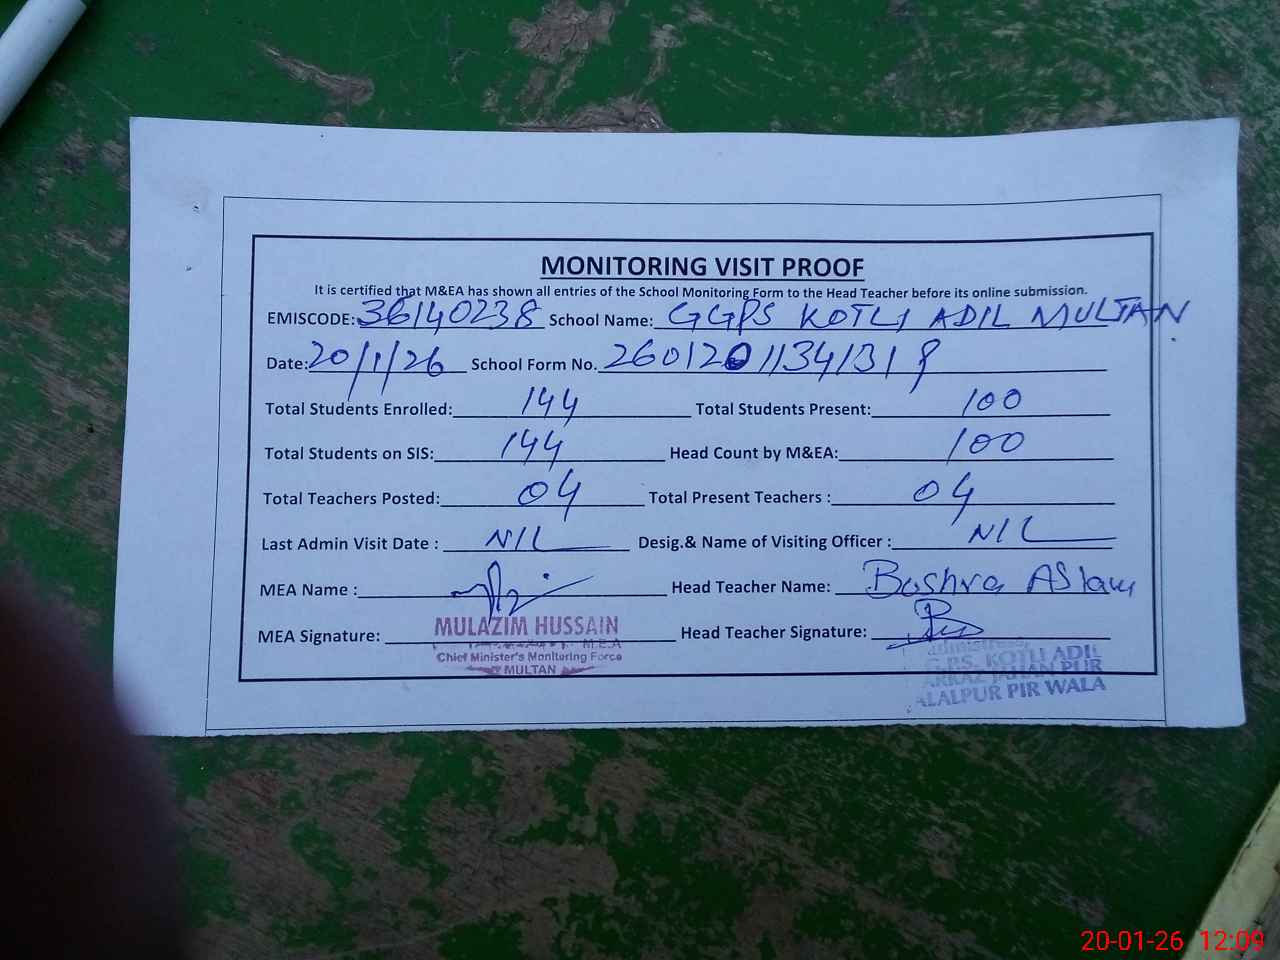 MONITORING VISIT PROOF
It is certified that M&EA has shown all entries of the School Monitoring Form to the Head Teacher before its online submission.
EMISCODE: 36140238 School Name: GGPS KOTLI ADIL MULTAN
Date: 20/1/26 School Form No. 26012011341319
Total Students Enrolled: 144 Total Students Present: 100
Total Students on SIS: 144 Head Count by M&EA: 100
Total Teachers Posted: 04 Total Present Teachers : 04
Last Admin Visit Date : NIL Desig.& Name of Visiting Officer : NIL
MEA Name : Head Teacher Name: Bushra Aslam
MEA Signature: Head Teacher Signature:
MULAZIM HUSSAIN
M.E.A
Chief Minister's Monitoring Force
MULTAN
G.P.S. KOTLI ADIL
JAHAN PUR
ALALPUR PIR WALA
20-01-26 12:09